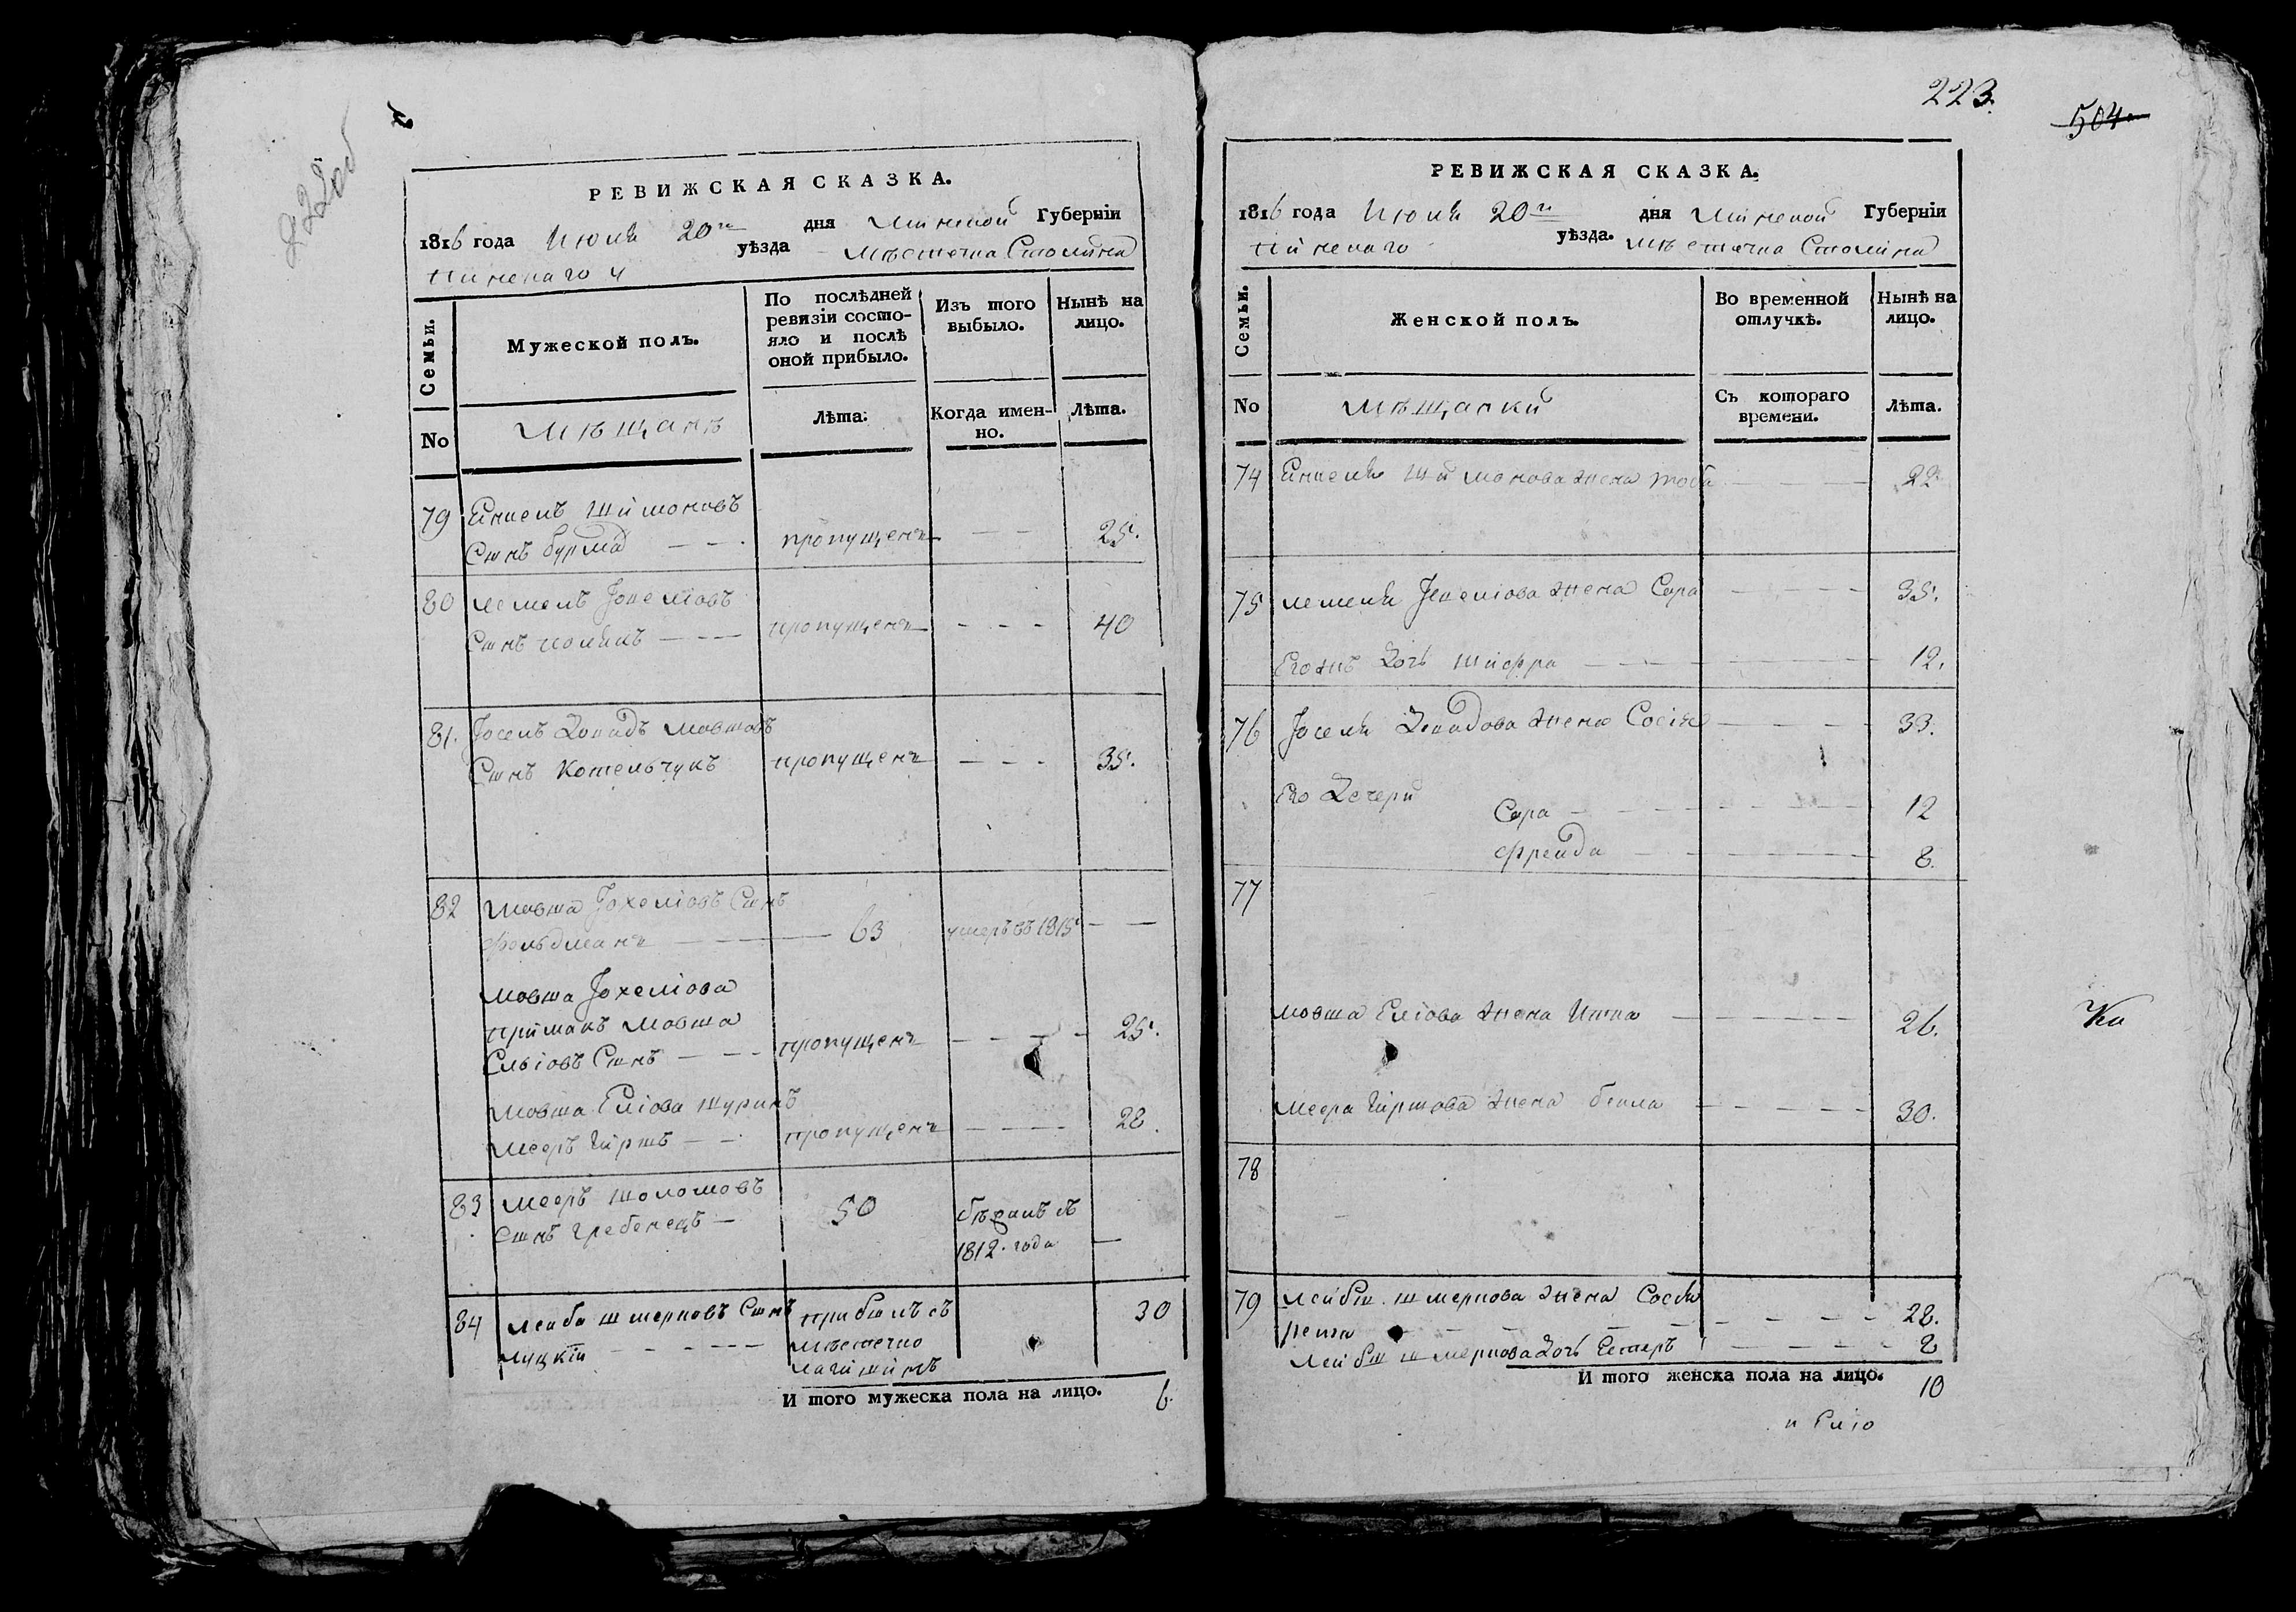 222об
РЕВИЖСКАЯ СКАЗКА.
1816 года Июня 20го дня Минской Губерніи
Пинскаго уѣзда Мѣстечка Столина
Семьи.
Мужеской полъ.
По послѣдней ревизіи состо-
яло и послѣ
оной прибыло.
Изъ того
выбыло.
Нынѣ на
лицо.
No
Мѣщанѣ
Лѣта:
Когда имен-
но.
Лѣта.
79 Енкель Шимоновъ
Сынъ бурма пропущенъ 25.
80
Сынъ пропущенъ 40
81. Іосель Мовшовъ
Сынъ Котельчукъ пропущенъ 35.
82 Мовша Іохеліовъ Сынъ
Фельдманъ 63 умеръ въ 1815
Мовша Іохеліова
примакъ Мовша
Сынъ пропущенъ 25.
Мовша Еліова шуринъ
Мееръ Гиршъ пропущенъ 28.
83 Мееръ Шоломовъ
Сынъ Гребенецъ 50
1812. года
84 Лейба Шмерковъ Сынъ прибылъ съ 30
Луцкій мѣстечко
Логишинъ
И того мужеска пола на лицо. 6.
223.
504
РЕВИЖСКАЯ СКАЗКА.
1816 года Июня 20го дня Минской Губерніи
Пинскаго уѣзда. Мѣстечка Столина
Семьи.
Женской полъ.
Во временной
отлучкѣ.
Нынѣ на
лицо.
No
Мѣщанки
Съ котораго
времени.
Лѣта.
74 Енкеля Шимонова жена Тоба 22
75 жена Сора 35.
Его жъ дочь Шифра 12.
76 Іоселя жена Сосія 33.
Его дочери
Сора 12
Фрейда 8.
77
Мовша Еліова жена Итка 26.
Меера Гиршова жена бейла 30.
78
79 Лейбы Шмеркова жена Сосья
28.
Лейбы Шмеркова дочь Естеръ 8
И того женска пола на лицо. 10
Ка